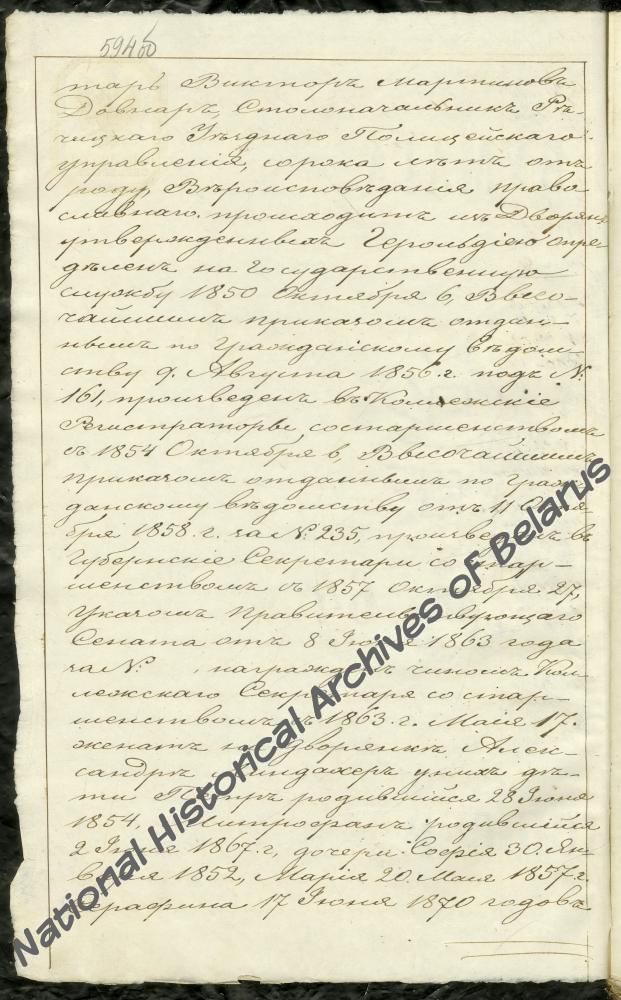 594 об
тарь Викторъ Мартиновъ
Довнаръ, Столоначальникъ Рѣ-
чицкаго Уѣзднаго Полицейскаго
управленія, сорока лѣтъ отъ
роду, Вѣроисповѣданія право
славнаго. происходитъ изъ Дворянъ
утвержденныхъ Герольдіею опре
дѣленъ на Государственную
службу 1850 Октября 6, Высо-
чайшимъ приказомъ отдан-
нымъ по гражданскому вѣдом
ству 9. Августа 1856 г. подъ №
161, произведенъ въ Коллежскіе
Регистраторы со старшенствомъ
съ 1854 Октября 6, Высочайшимъ
приказомъ отданнымъ по граж-
данскому вѣдомству отъ 11
бря 1858. г. за № 235, произведенъ въ
Губернскіе Секретари со стар-
шенствомъ съ 1857 Октября 27,
указомъ Правительствующаго
Сената отъ 8 1863 года
за № , награжденъ чиномъ Кол
лежскаго Секретаря со стар-
шенствомъ съ 1863. г. Маія 17.
женатъ на Дворянкѣ Алек-
сандрѣ у нихъ дѣ-
ти Петръ родившійся 28 Іюня
1854, Митрофанъ родившійся
2 1867. г, дочери: Софія 30. Ян-
варя 1852, Марія 20. Маія 1857 г.
Серафина 17 Іюня 1870 годовъ
National Historical Archives of Belarus